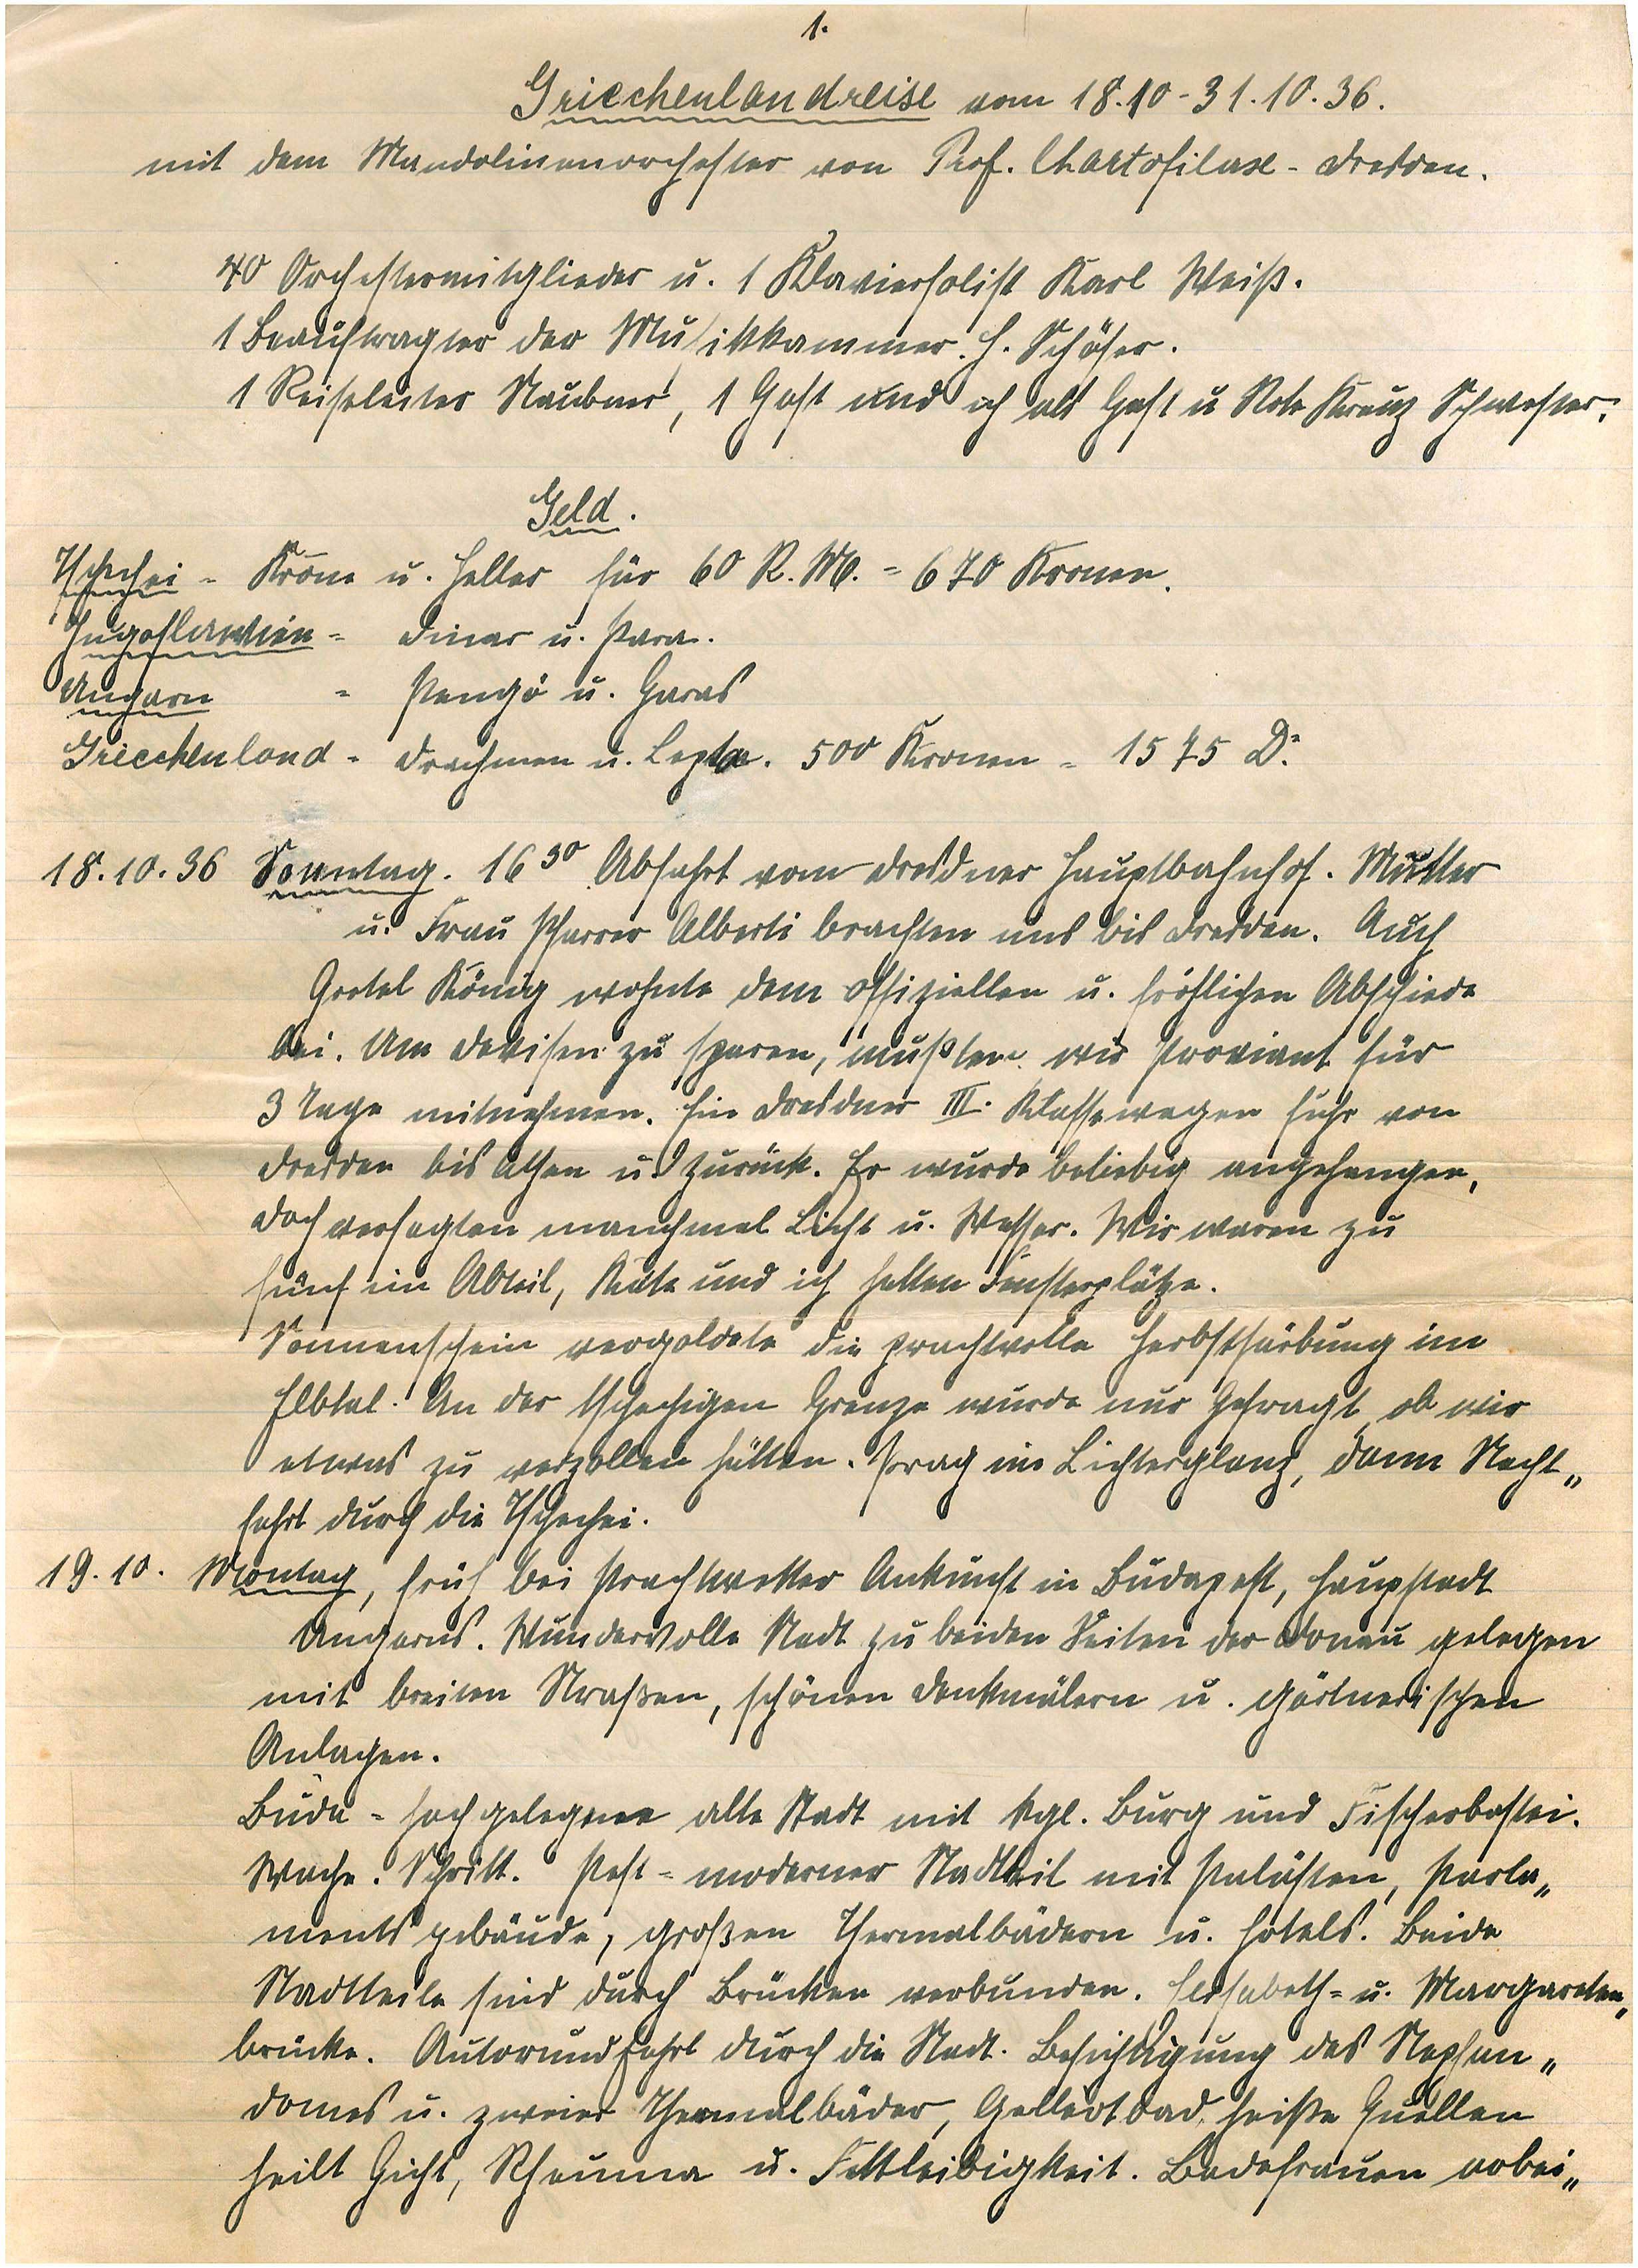 1.
Griechenlandreise vom 18.10-31.10.36.
mit dem Mandolinenorchester von Prof. Chartofilax - Dresden.
40 Orchestermitglieder u. 1 Klaviersolist Karl Weiß.
1 Beauftragter der Musikkammer. H. Schöfer.
1 Reiseleiter Naubner, 1 Gast und ich als Gast u Rote Kreuz Schwester.
Geld.
Tschechei - Krone u. Heller für 60 R.M. = 670 Kronen.
Jugoslawien = Dinar u. Para.
Ungarn = Pengö u. Garas
Griechenland - Drachmen u. Lepta. 500 Kronen = 1575 D.
18.10.36 Sonntag. 16 30 Abfahrt vom Dresdner Hauptbahnhof. Mutter
u. Frau Pfarrer Alberti brachten uns bis Dresden. Auch
Gretel König wohnte dem offiziellen u. fröhlichen Abschiede
bei. Um Devisen zu sparen, mußten wir Proviant für
3 Tage mitnehmen. Ein Dresdner III. Klassewagen fuhr von
Dresden bis Athen u. zurück. Er wurde beliebig angehangen,
doch versagten manchmal Licht u. Wasser. Wir waren zu
fünf im Abteil, Käte und ich hatten Fensterplätze.
Sonnenschein vergoldete die prachtvolle Herbstfärbung im
Elbtal. An der tschechigen Grenze wurde nur gefragt ob wir
etwas zu verzollen hätten. Prag im Lichterglanz, dann Nacht„
fahrt durch die Tschechei.
19.10. Montag, früh bei Prachtwetter Ankunft in Budapest, Haupstadt
Ungarns. Wundervolle Stadt zu beiden Seiten der Donau gelegen
mit breiten Straßen, schönen Denkmälern u. gärtnerischen
Anlagen.
Buda = hochgelegene alte Stadt mit kgl. Burg und Fischerbastei.
Wache. Schritt. Pest = moderner Stadtteil mit Palästen, Parla„
mentsgebäude, großen Thermalbädern u. Hotels. Beide
Stadtteile sind durch Brücken verbunden. Elisabeth- u. Margareten„
brücke. Autorundfahrt durch die Stadt. Besichtigung des Stephan„
domes u. zweier Thermalbäder, Gellértbad, heiße Quellen
heilt Gicht, Rheuma u. Fettleibigkeit. Badefrauen arbei„